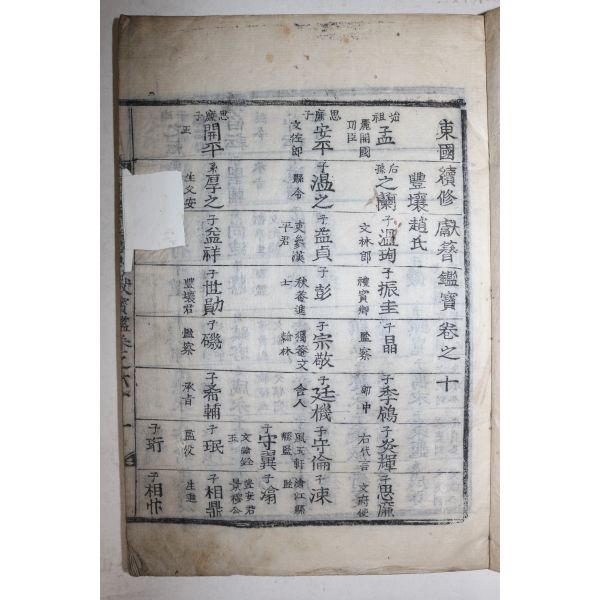 東國續修獻䔲鑑寶卷之十
豐壤趙氏
始祖孟 麗開國功臣
后孫之藺 子溫珣 文林郎 子振圭 禮賓卿 子晶 監察 子季鴒 郎中 子炎輝 右代言 子思廉 文府使
思廉子安平 文佐郎 子溫之 縣令 子益貞 吏參漢平君 子彭 秋菴進士 子宗敬 獨菴文翰林 子廷機 舍人 子守倫 風玉軒縣監 子涑 滄江縣監
子守翼 文 子滃
思廉子開平 正 弟厚之 生文安 子益祥 子世勛 豐壤君 子磯 監察 子希輔 承旨 子珉 監役 子相鼎 生進
子珩 子相忭